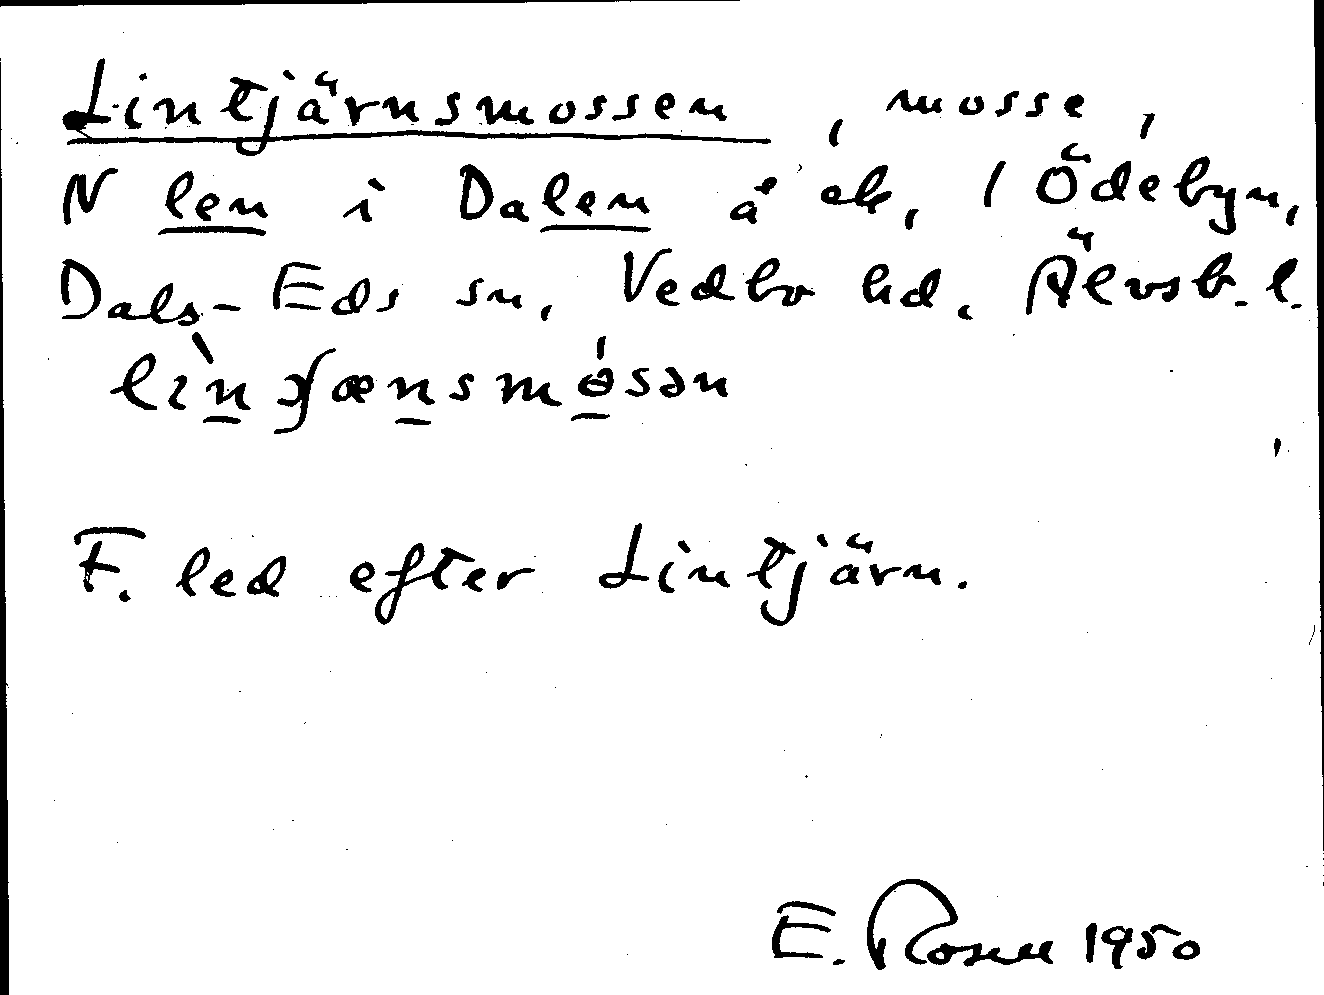 Lintjärnsmossen, mosse,
N len i Dalen å ek, 1 Ödebyn,
Dals-Eds sn, Vedbo hd. Älvsb. l.
F. led efter Lintjärn.
E. Rosen 1950